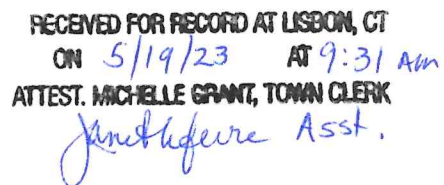 RECEIVED FOR RECORD AT LISBON, CT
ON 5/19/23 AT 9:31 AM
ATTEST. MICHELLE GRANT, TOWN CLERK
Asst.